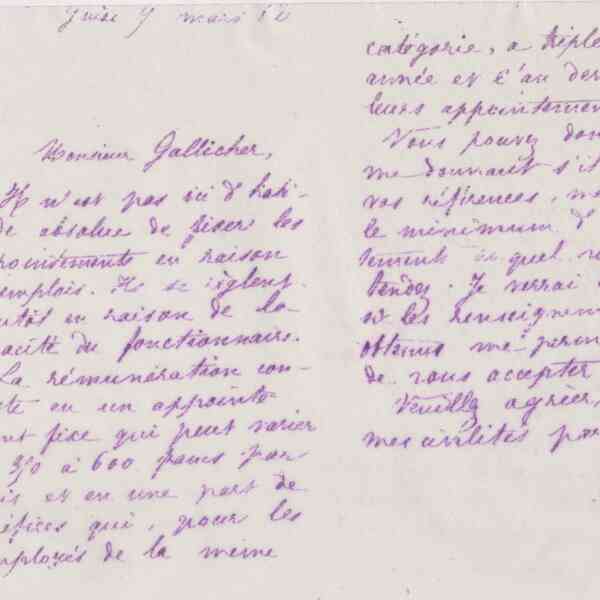 Guise 7 mars 62
Monsieur Gallicher,
Il n'est pas ici d'habi-
de absolue de fixer les
pointements en raison
emplois. Ils se règlent
utôt en raison de la
pacité du fonctionnaire.
La rémunération con-
ste en un appointe-
ent fixe qui peut varier
à 600 francs par
is et en une part de
éfices qui, pour les
mployés de la même
catégorie, a triplé
année et l'an der
leurs appointemen
Vous pouvez don
me donnant s'il
vos références, me
le minimum d'
tements quel
tendez. Je verrai
si les renseignem
obtenus me perm
de vous accepter
Veuillez agréer,
mes civilités par